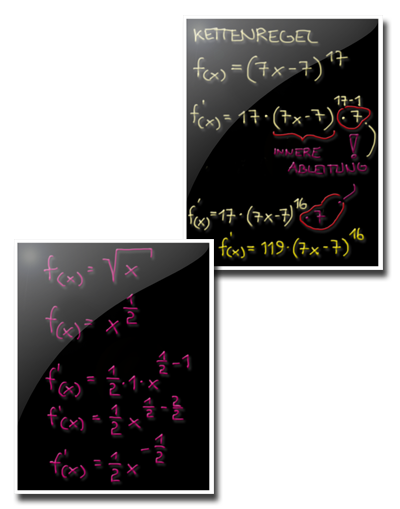 KETTENREGEL
f(x) = (7x-7)^17
f'(x) = 17·(7x-7)^17-1 · 7
INNERE !
ABLEITUNG
f'(x) = 17·(7x-7)^16 · 7
f'(x) = 119·(7x-7)^16
f(x) = √x
f(x) = x^1/2
f'(x) = 1/2·1·x^1/2-1
f'(x) = 1/2 x^1/2-2/2
f'(x) = 1/2 x^-1/2